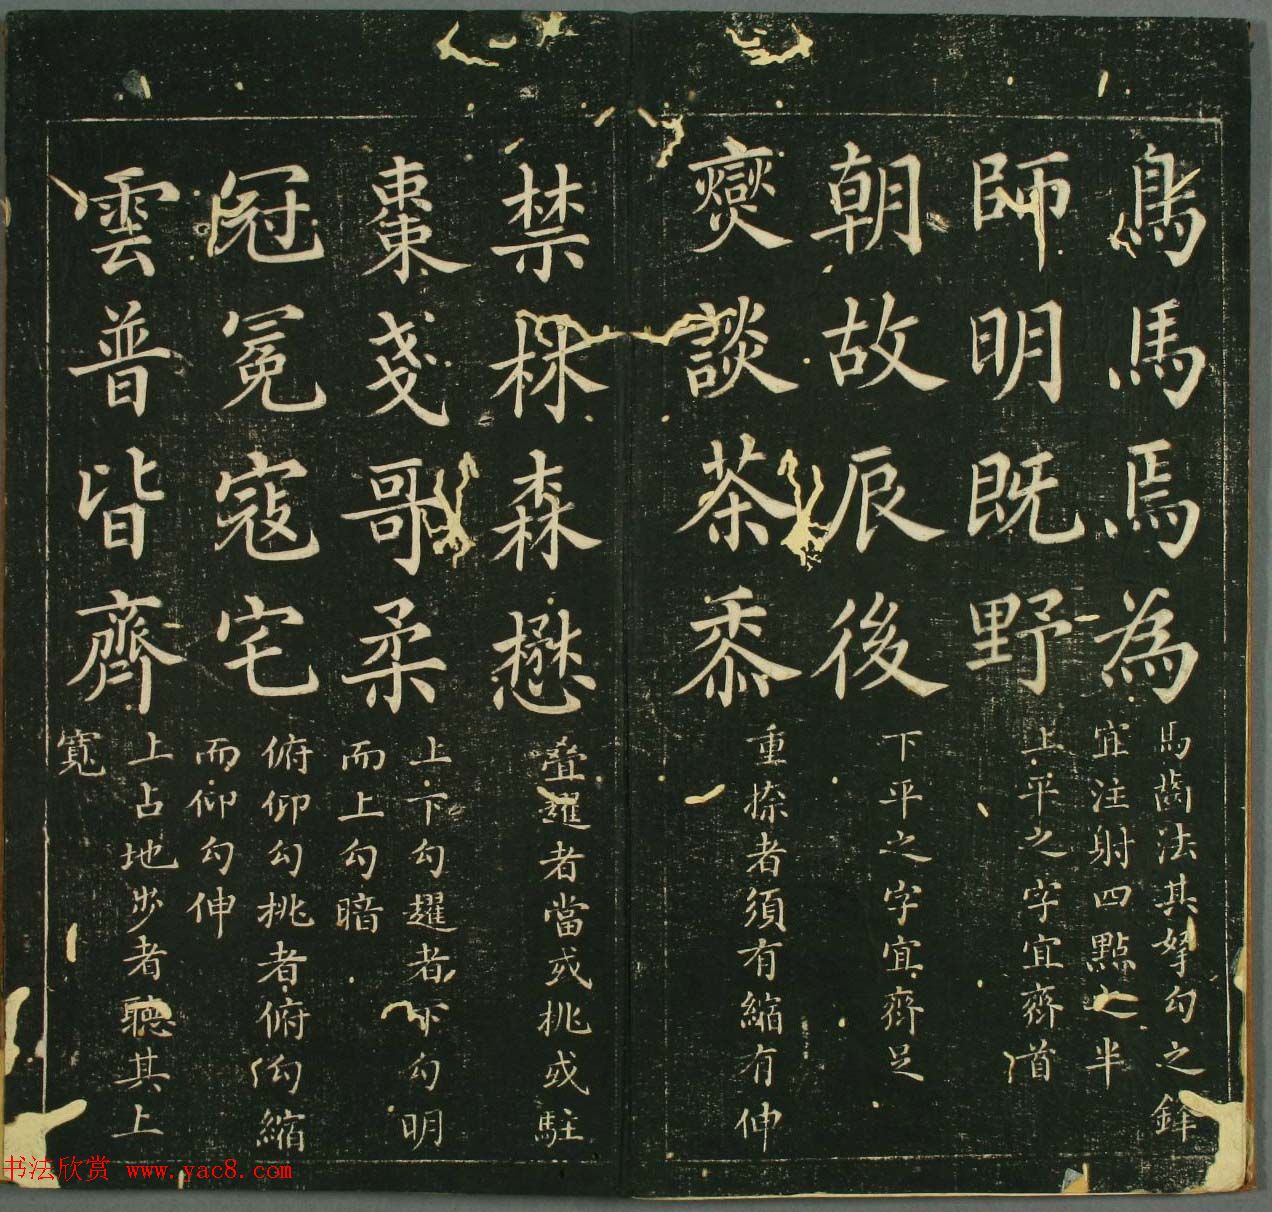 鳥馬焉為
馬齒法其拏勾之鋒
宜注射四點之半
師明既野
上平之字宜齊首
朝故辰後
下平之字宜齊足
爕談茶黍
重捺者須有縮有伸
禁林森懋
疊趯者當或挑或駐
棗戔哥柔
上下勾趯者下勾明
而上勾暗
冠冕寇宅
俯仰勾挑者俯勾縮
而仰勾伸
雲普皆齊
上占地步者聽其上
寬
书法欣赏 www.yac8.com